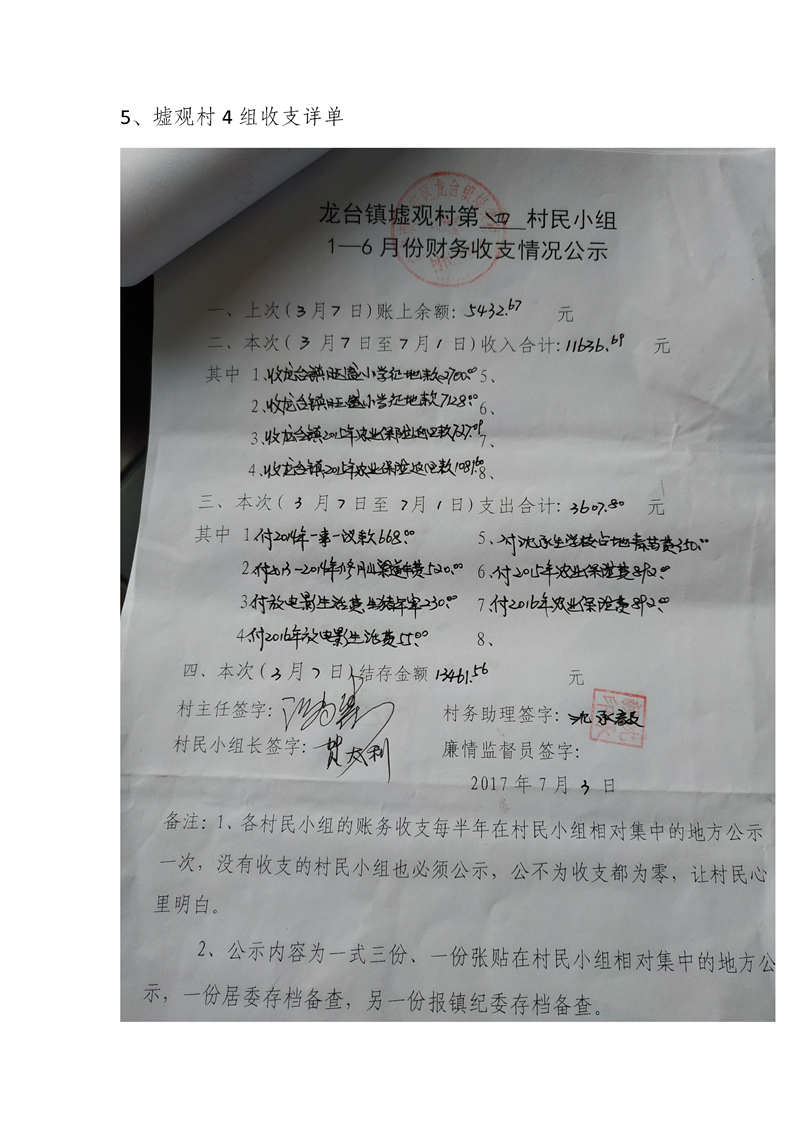 5、墟观村 4 组收支详单
龙台镇墟观村第 四 村民小组
1—6 月份财务收支情况公示
一、上次(3月7日)账上余额: 5432.67 元
二、本次( 3 月7日至7月1日)收入合计: 11636.69 元
其中 1、收龙台镇旺盛小学征地款2700.00 5、
2、收龙台镇旺盛小学征地款7128.00 6、
3、收龙台镇2015年农业保险返回款727.09 7、
4、收龙台镇2015年农业保险返回款1081.60 8、
三、本次( 3 月7日至7月1日)支出合计: 3607.80 元
其中 1、付2014年一事一议款668.00 5、付沈承生学校占地青苗费250.00
2、付2013-2014年修 费520.00 6、付2015年农业保险费892.00
3、付放电影生活费 230.00 7、付2016年农业保险费892.00
4、付2016年放电影生活费55.00 8、
四、本次(3月7日)结存金额 13461.56 元
村主任签字: 村务助理签字: 沈承毅
村民小组长签字: 廉情监督员签字:
2017年7月3日
备注: 1、各村民小组的账务收支每半年在村民小组相对集中的地方公示
一次，没有收支的村民小组也必须公示，公不为收支都为零，让村民心
里明白。
2、公示内容为一式三份、一份张贴在村民小组相对集中的地方公
示，一份居委存档备查，另一份报镇纪委存档备查。